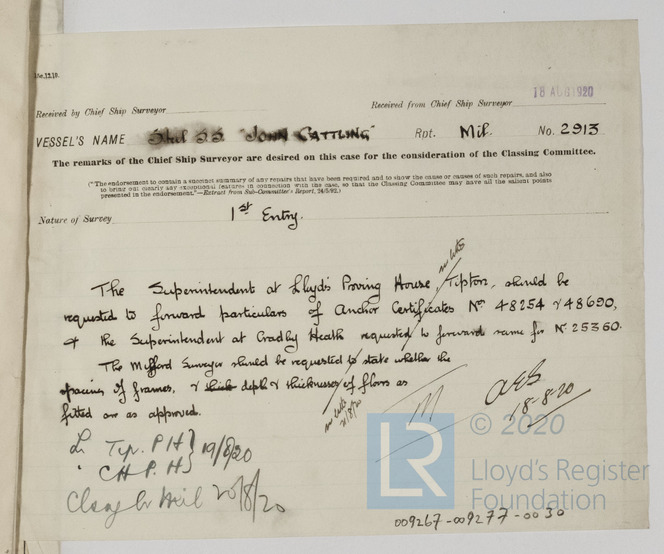 18 AUG 1920
Received by Chief Ship Surveyor
Received from Chief Ship Surveyor
VESSEL'S NAME Stul SS "JOHN GATTLING" Rpt. Mil. No. 2913
The remarks of the Chief Ship Surveyor are desired on this case for the consideration of the Classing Committee.
("The endorsement to contain a succinct summary of any repairs that have been required and to show the cause or causes of such repairs, and also
to bring out clearly any exceptional features in connection with the case, so that the Classing Committee may have all the salient points
presented in the endorsement."—Extract from Sub-Committee's Report, 24/5/92.)
Nature of Survey 1st Entry.
The Superintendent at Lloyd's Proving House, Tipton, should be
requested to forward particulars of Anchor Certificates Nos 48254 & 48690,
& the Superintendent at Cradley Heath requested to forward same for No 25360.
The Milford Surveyor should be requested to state whether the
spacing of frames, & depth & thickness of floors as
fitted are as approved.
18-8-20
Tip. P H } 19/8/20
" C H P. H }
20/8/20
LR
© 2020
Lloyd's Register
Foundation
009267-009277-0030